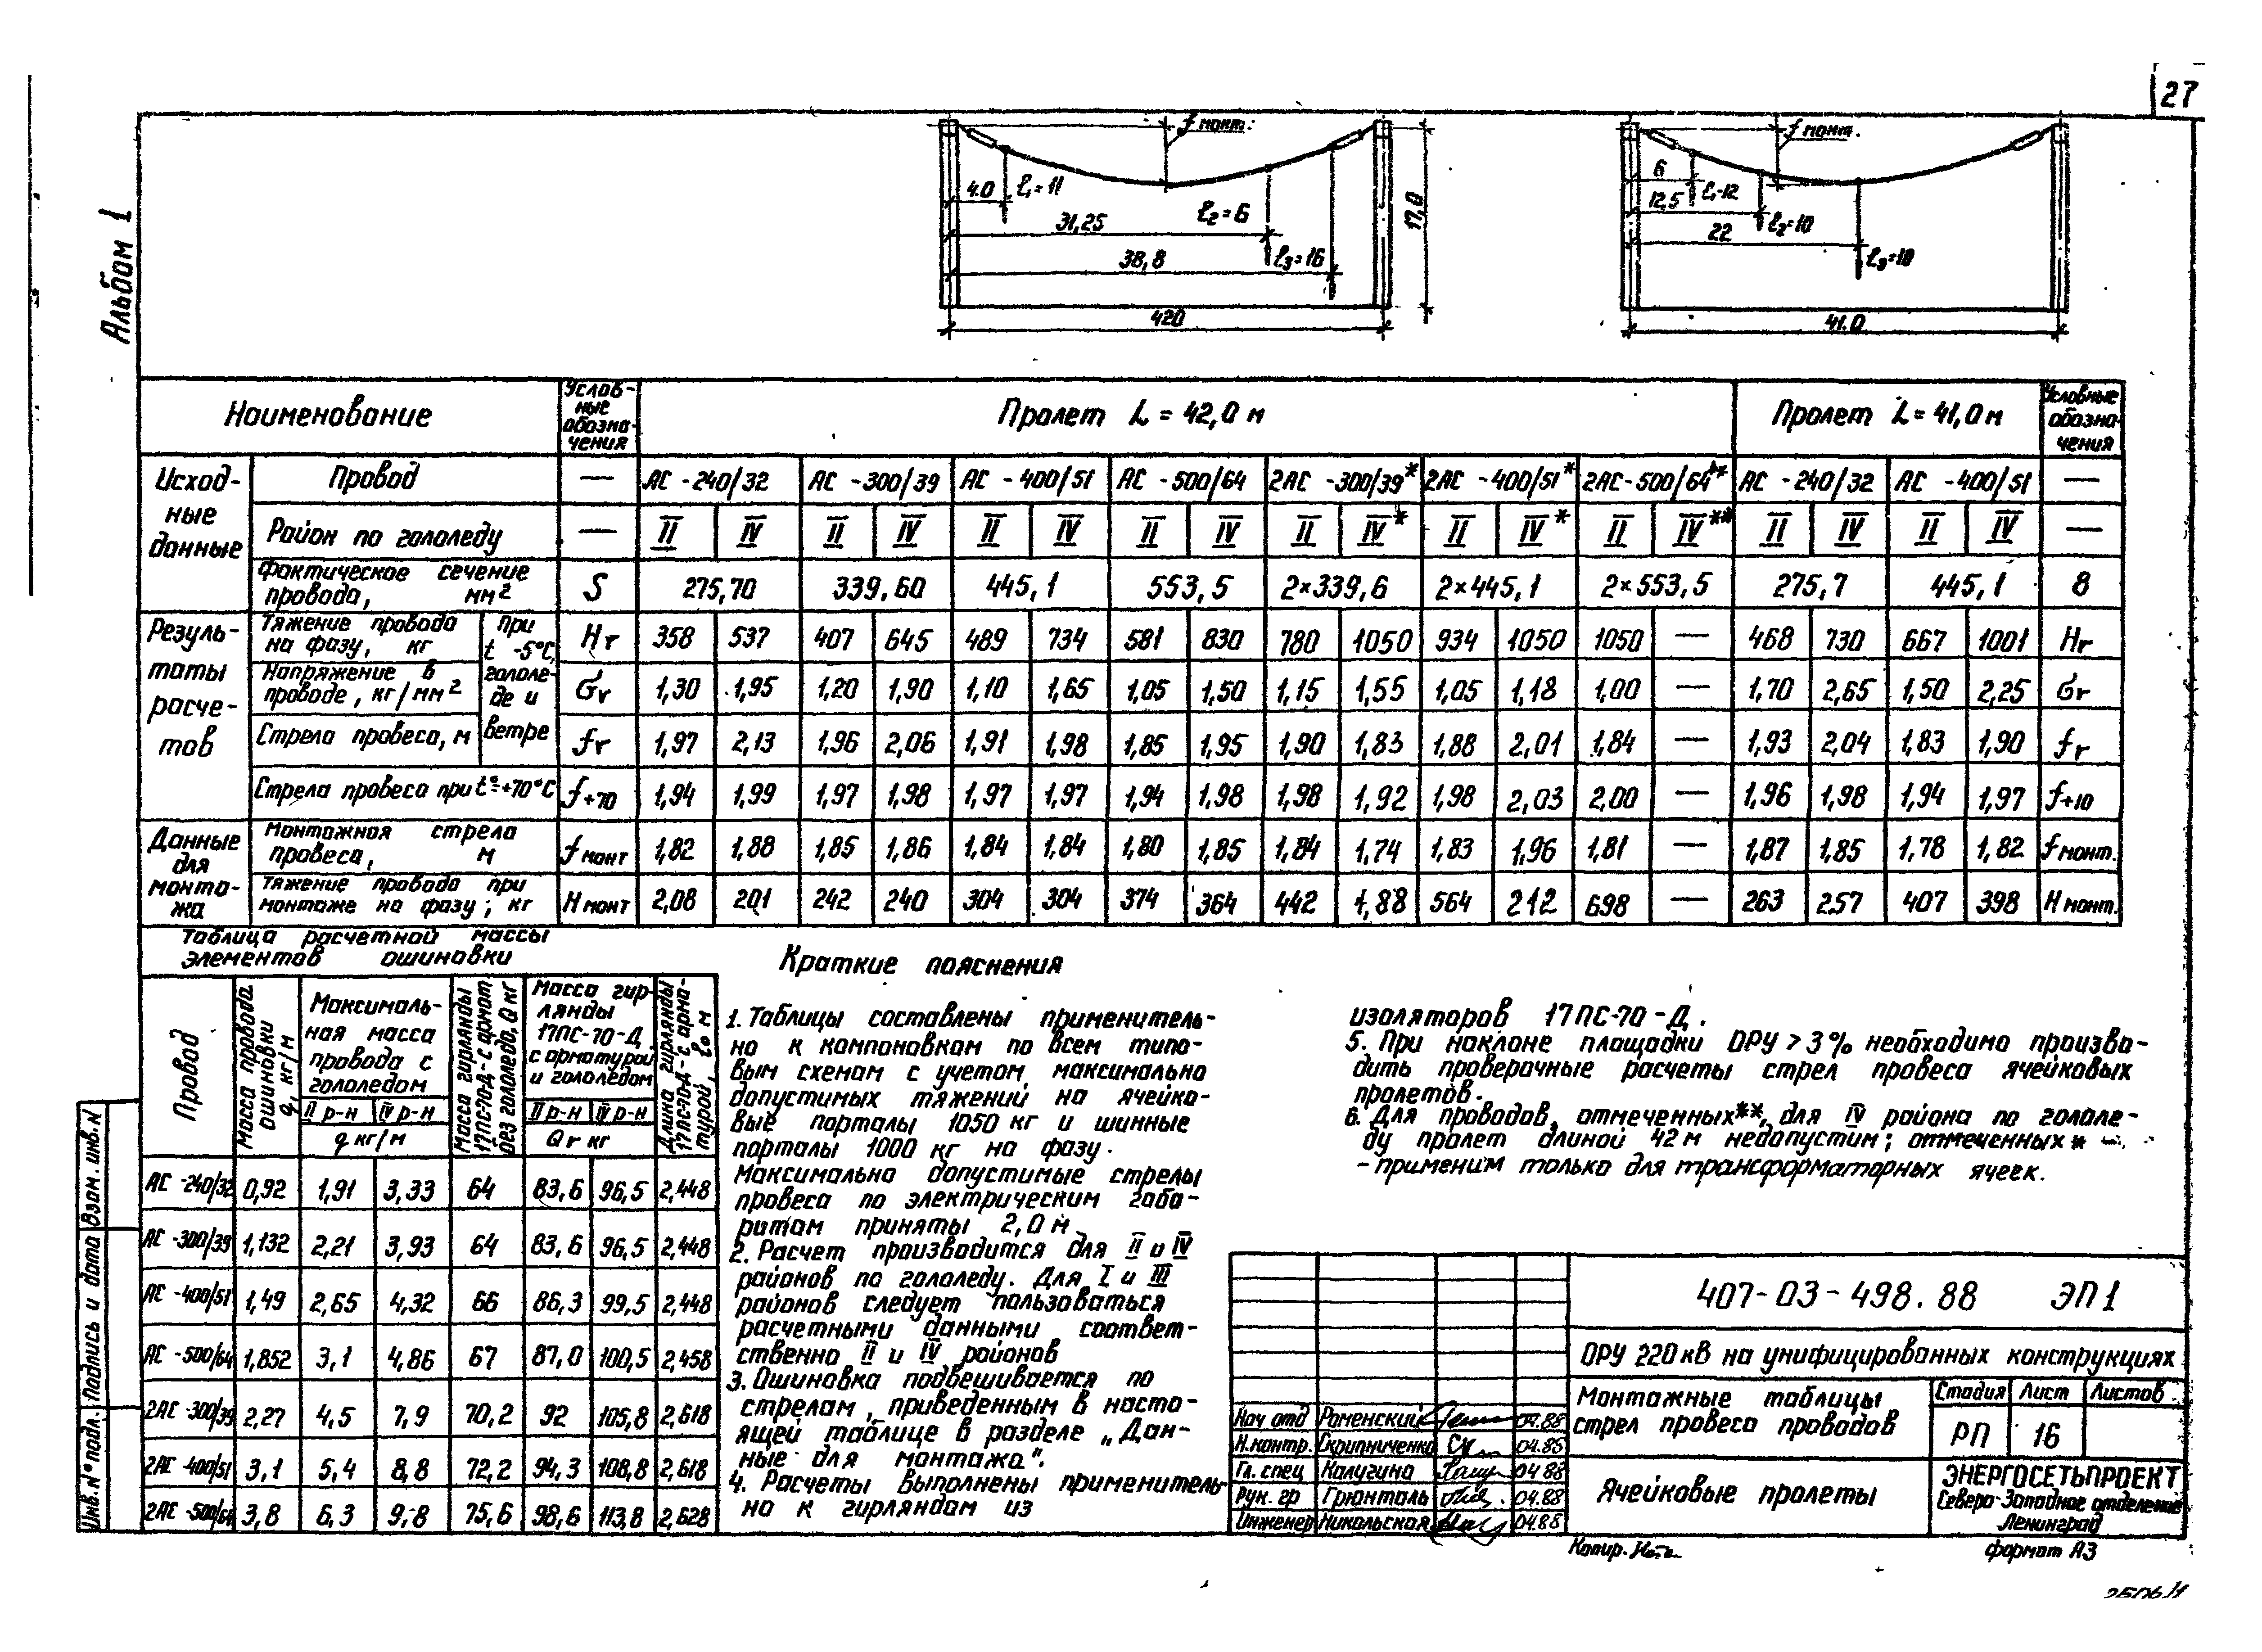 27
Альбом 1
f монт.
4.0 ℓ₁=11
31,25 ℓ₂=6
38,8 ℓ₃=16
17,0
420
f монт.
6 ℓ₁-12
12,5 ℓ₂=10
22 ℓ₃=10
41.0
Наименование Услов-ные обозна-чения Пролет L = 42,0 м Пролет L = 41,0 м Условные обозна-чения
Исход-ные данные Провод — АС -240/32 АС -300/39 АС -400/51 АС -500/64 2АС -300/39* 2АС -400/51* 2АС-500/64** АС -240/32 АС -400/51 —
Район по гололеду — II IV II IV II IV II IV II IV* II IV* II IV** II IV II IV —
Фактическое сечение провода, мм² S 275,70 339,60 445,1 553,5 2×339,6 2×445,1 2×553,5 275,7 445,1 8
Резуль-таты расче-тов
Тяжение провода на фазу, кг При t -5°С, гололе-де и ветре Hг 358 537 407 645 489 734 581 830 780 1050 934 1050 1050 — 468 730 667 1001 Hг
Напряжение в проводе, кг/мм² σг 1,30 1,95 1,20 1,90 1,10 1,65 1,05 1,50 1,15 1,55 1,05 1,18 1,00 — 1,70 2,65 1,50 2,25 σг
Стрела провеса, м fг 1,97 2,13 1,96 2,06 1,91 1,98 1,85 1,95 1,90 1,83 1,88 2,01 1,84 — 1,93 2,04 1,83 1,90 fг
Стрела провеса при t°=+70°С f+70 1,94 1,99 1,97 1,98 1,97 1,97 1,94 1,98 1,98 1,92 1,98 2,03 2,00 — 1,96 1,98 1,94 1,97 f+10
Данные для монта-жа
Монтажная стрела провеса, м f монт 1,82 1,88 1,85 1,86 1,84 1,84 1,80 1,85 1,84 1,74 1,83 1,96 1,81 — 1,87 1,85 1,78 1,82 f монт.
Тяжение провода при монтаже на фазу, кг H монт 2,08 201 242 240 304 304 374 364 442 1,88 564 212 698 — 263 257 407 398 H монт.
Таблица расчетной массы
элементов ошиновки
Провод Масса провода ошиновки q, кг/м Максималь-ная масса провода с гололедом II р-н IV р-н q кг/м Масса гирлянды 17ПС-70-Д-с армат. без гололеда, Q кг Масса гир-лянды 17ПС-70-Д, с арматурой и гололедом II р-н IV р-н Qг кг Длина гирлянды 17ПС-70-Д-с арма-турой, ℓ₀ м
АС -240/32 0,92 1,91 3,33 64 83,6 96,5 2,448
АС -300/39 1,132 2,21 3,93 64 83,6 96,5 2,448
АС -400/51 1,49 2,65 4,32 66 86,3 99,5 2,448
АС -500/64 1,852 3,1 4,86 67 87,0 100,5 2,458
2АС -300/39 2,27 4,5 7,9 70,2 92 105,8 2,618
2АС -400/51 3,1 5,4 8,8 72,2 94,3 108,8 2,618
2АС -500/64 3,8 6,3 9,8 75,6 98,6 113,8 2,628
Краткие пояснения
1. Таблицы составлены применитель-
но к компоновкам по всем типо-
вым схемам с учетом максимально
допустимых тяжений на ячейко-
вые порталы 1050 кг и шинные
порталы 1000 кг на фазу.
Максимально допустимые стрелы
провеса по электрическим габа-
ритам приняты 2,0 м
2. Расчет производится для II и IV
районов по гололеду. Для I и III
районов следует пользоваться
расчетными данными соответ-
ственно II и IV районов
3. Ошиновка подвешивается по
стрелам, приведенным в насто-
ящей таблице в разделе „Дан-
ные для монтажа".
4. Расчеты выполнены применитель-
но к гирляндам из
изоляторов 17ПС-70-Д.
5. При наклоне площадки ОРУ > 3% необходимо произво-
дить проверочные расчеты стрел провеса ячейковых
пролетов.
6. Для проводов, отмеченных**, для IV района по гололе-
ду пролет длиной 42 м недопустим; отмеченных * -
- применим только для трансформаторных ячеек.
407-03-498.88 ЭП1
ОРУ 220 кВ на унифицированных конструкциях
Монтажные таблицы
стрел провеса проводов
Стадия Лист Листов
РП 16
Ячейковые пролеты
ЭНЕРГОСЕТЬПРОЕКТ
Северо-Западное отделение
Ленинград
Нач отд Роменский 04.88
Н.контр. Скрипниченко 04.85
Гл. спец Калугина 04 88
Рук. гр Грюнталь 04.88
Инженер Никольская 04.88
Инв. № подл. Подпись и дата Взам. инв. N
Копир.
формат А3